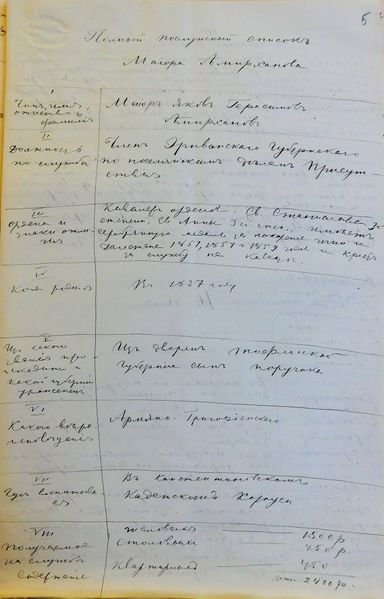 5
Полный послужной списокъ
Маiора Амирханова
I
Чинъ, имя,
отчество и
фамилiя
Маiоръ Яковъ Герасимовъ
Амирхановъ
II
Должность
по службѣ
Членъ Эриванскаго Губернскаго
по поселянскимъ дѣламъ Присут
ствiя
III
Ордена и
знаки отли
чiя
Кавалеръ орденовъ: Св. Станислава 3й
степени, Св. Анны 3й степ., имѣетъ
серебрянную медаль за покоренiе Чечни и
Дагестана 1857, 1858 и 1859 годъ и крестъ
за службу на Кавказѣ
IV
Когда родился
Въ 1837 году
V
Изъ какого
званiя про
исходитъ и
какой губернiи
уроженецъ
Изъ дворянъ Тифлисской
губернiи сынъ поручика
VI
Какого вѣро
исповѣданiя
Армяно-Григорiанскаго
VII
Гдѣ воспиты
вался
Въ Константиновскомъ
Кадетскомъ Корпусѣ
VIII
Получаемое
на службѣ
содержанiе
жалованья 1500 р
столовыхъ 450 р
Квартирныхъ 450
2400 р.